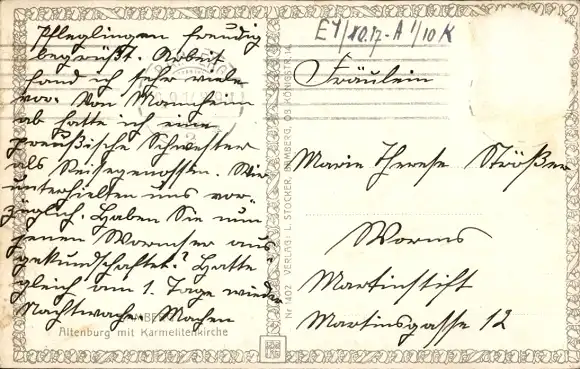 Pfleglingen freudig
begrüßt. Arbeit
fand ich sehr viele
vor. Von Mannheim
ab hatte ich eine
preußische Schwester
als Reisegenossin. Wir
unterhielten uns vor-
züglich. Haben Sie nun
jenen Wormser aus-
gekundschaftet? Hatte
gleich am 1. Tage wieder
Nachtwache. Machen
BAMBERG
Altenburg mit Karmelitenkirche
Nr 1402 VERLAG: L. STOCKER, BAMBERG, OB. KÖNIGSTR. 14
Fräulein
Marie Therese Strößer
Worms
Martinstift
Martinsgasse 12